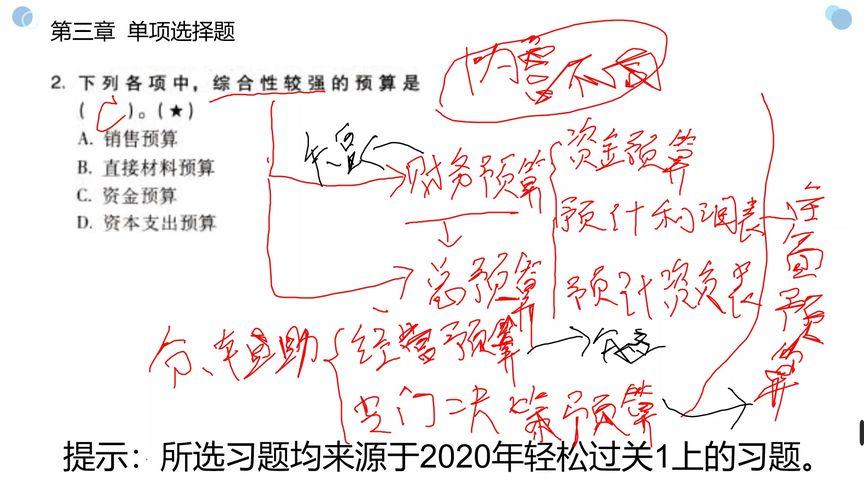 第三章 单项选择题
2. 下列各项中，综合性较强的预算是
( C )。(★)
A. 销售预算
B. 直接材料预算
C. 资金预算
D. 资本支出预算
财务预算
资金预算
预计利润表
预计资负表
总预算
分、辅助
经营预算
专门决策预算
全面预算
提示：所选习题均来源于2020年轻松过关1上的习题。